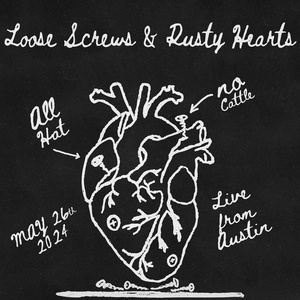 Loose Screws & Rusty Hearts
All
Hat
no
Cattle
MAY 26th
2024
Live
from
Austin